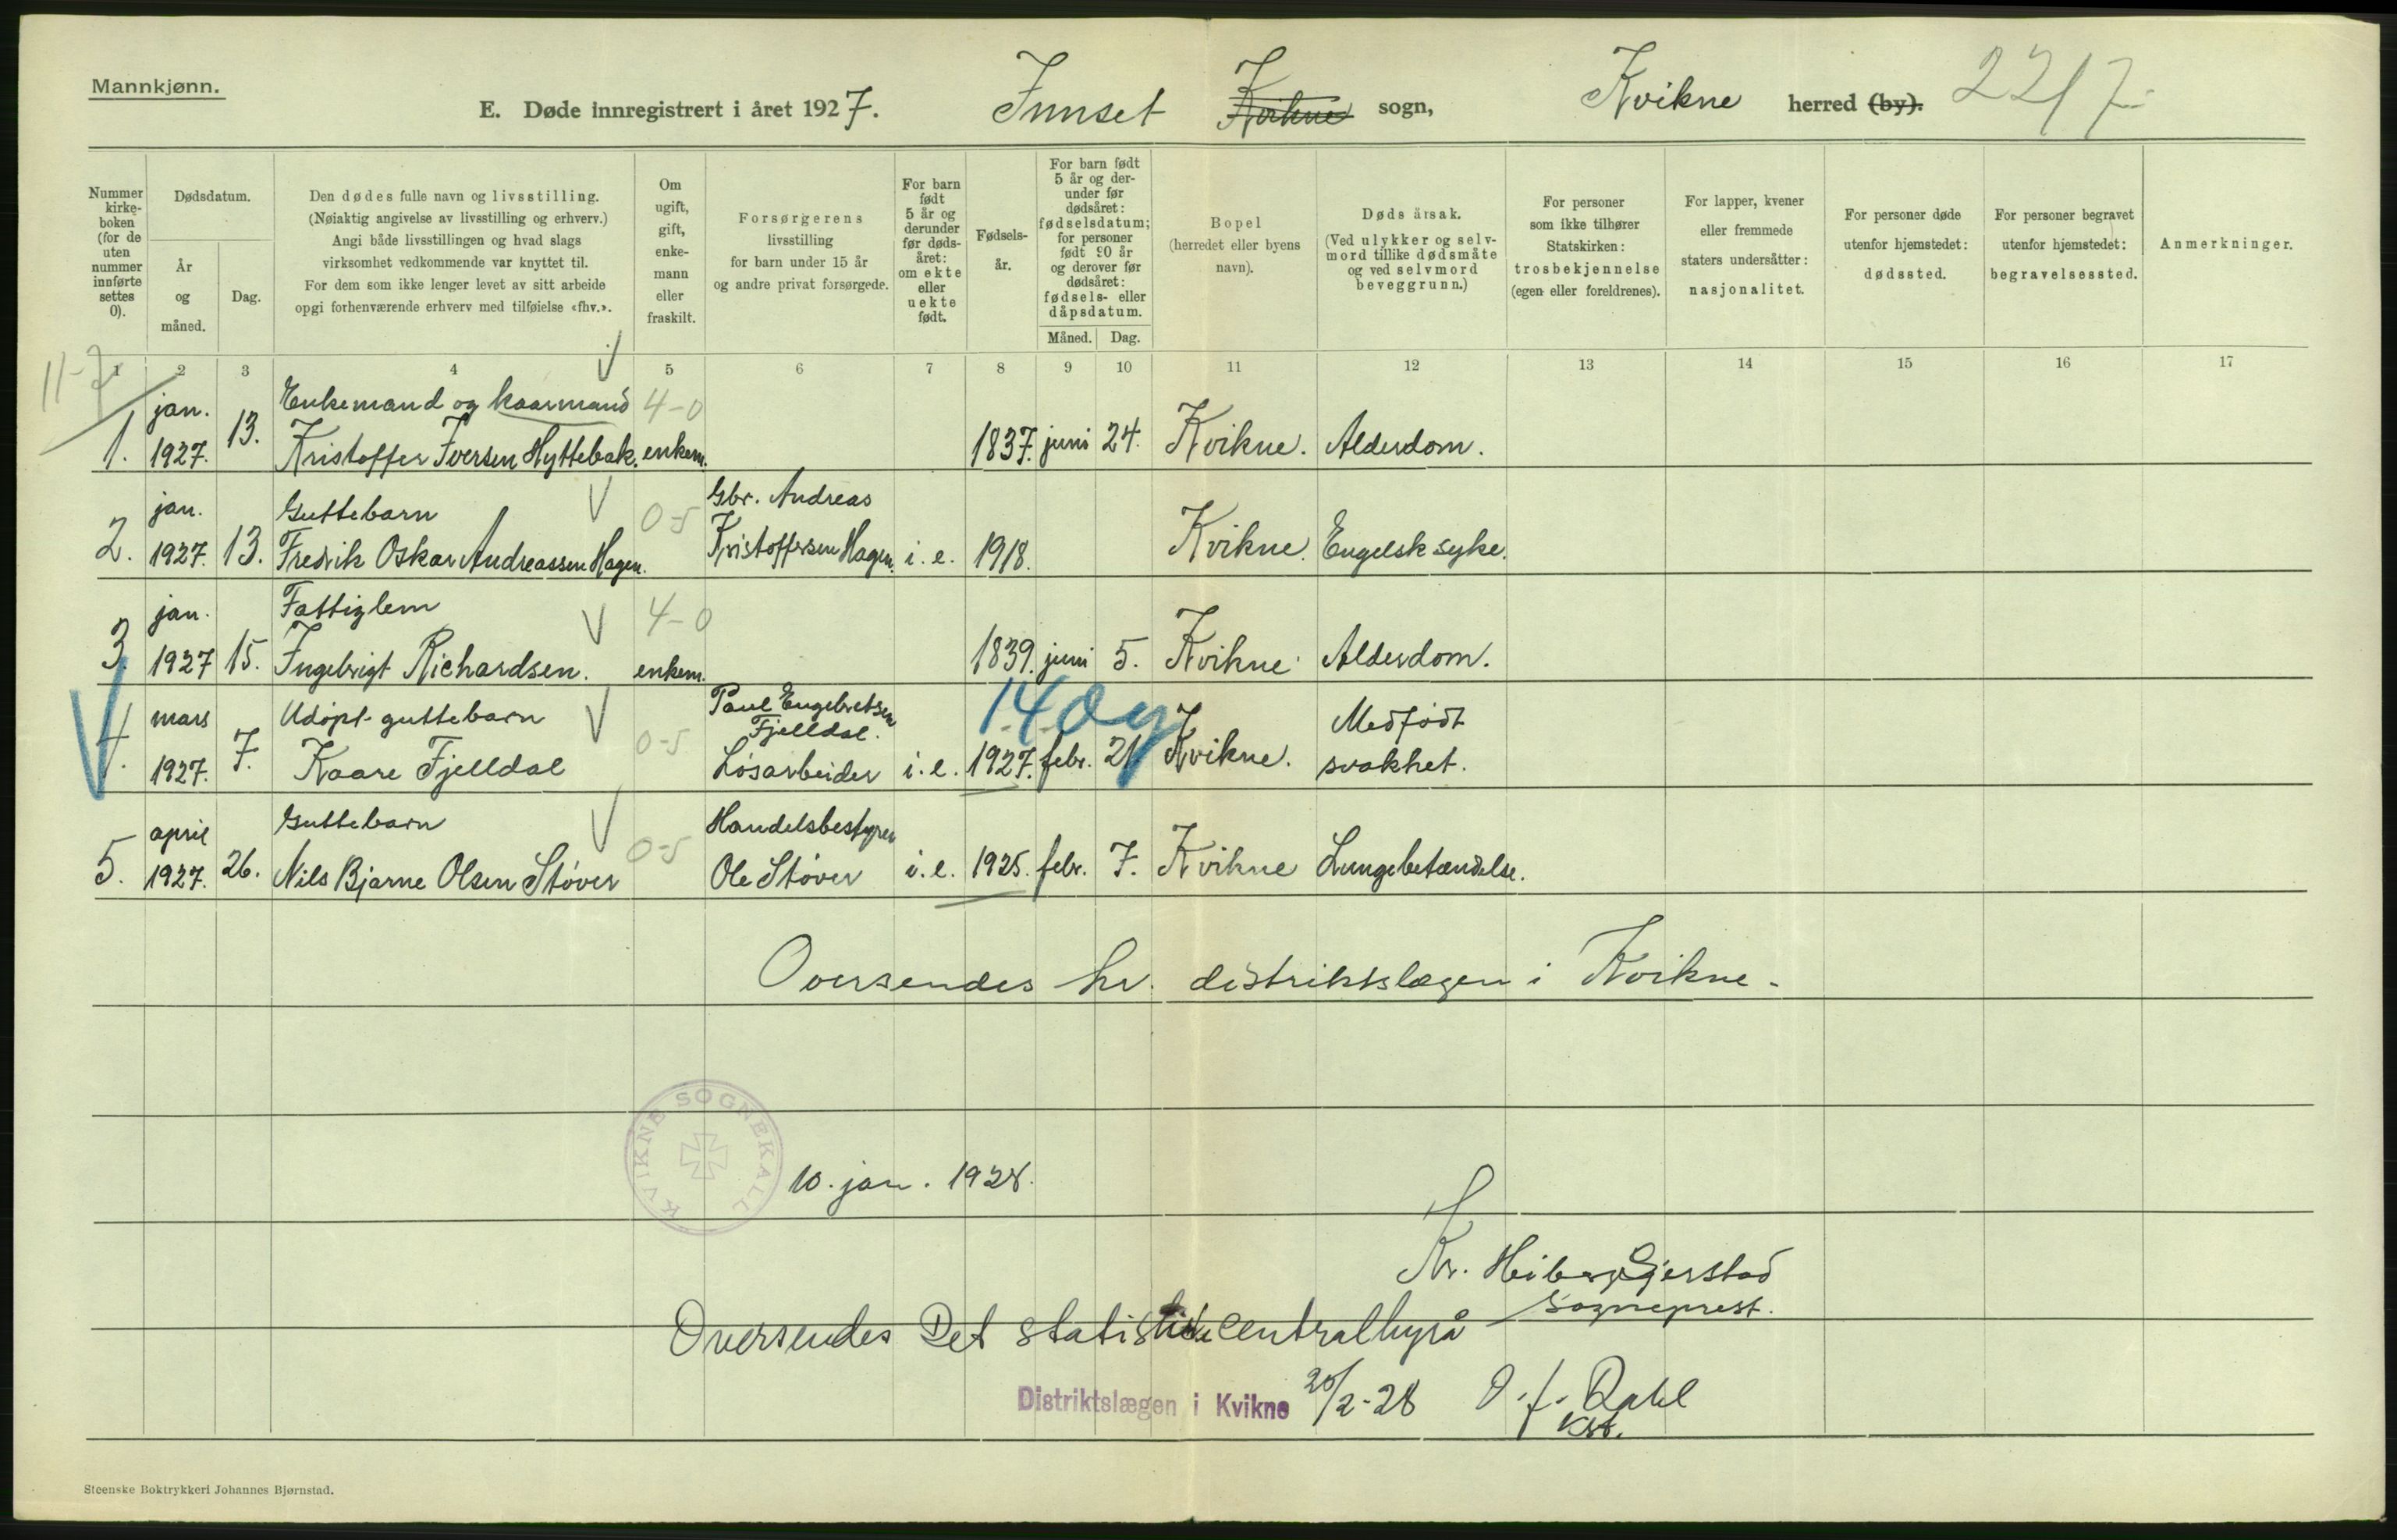 Mannkjønn.
E. Døde innregistrert i året 1927. Innset Kvikne sogn, Kvikne herred (by). 2217
Nummer kirke-boken (for de uten nummer innførte settes 0).
Dødsdatum.
År og måned.
Dag.
Den dødes fulle navn og livsstilling.
(Nøiaktig angivelse av livsstilling og erhverv.)
Angi både livsstillingen og hvad slags
virksomhet vedkommende var knyttet til.
For dem som ikke lenger levet av sitt arbeide
opgi forhenværende erhverv med tilføielse «fhv.».
Om ugift, gift, enke-mann eller fraskilt.
Forsørgerens
livsstilling
for barn under 15 år
og andre privat forsørgede.
For barn født 5 år og derunder før døds-året: om ekte eller uekte født.
Fødsels-år.
For barn født 5 år og der-under før dødsåret: fødselsdatum; for personer født 90 år og derover før dødsåret: fødsels- eller dåpsdatum.
Måned. Dag.
Bopel
(herredet eller byens
navn).
Dødsårsak.
(Ved ulykker og selv-
mord tillike dødsmåte
og ved selvmord
beveggrunn.)
For personer
som ikke tilhører
Statskirken:
trosbekjennelse
(egen eller foreldrenes).
For lapper, kvener
eller fremmede
staters undersåtter:
nasjonalitet.
For personer døde
utenfor hjemstedet:
dødssted.
For personer begravet
utenfor hjemstedet:
begravelsessted.
Anmerkninger.
1 2 3 4 5 6 7 8 9 10 11 12 13 14 15 16 17
11-7
jan. Enkemand og kaarmand 4-0
1. 1927. 13. Kristoffer Iversen Hyttebak. enkem. 1837. juni 24. Kvikne. Alderdom.
jan. Guttebarn 0-5 Gbr. Andreas
2. 1927. 13. Fredrik Oskar Andreassen Hagen. Kristoffersen Hagen. i.e. 1918. Kvikne. Engelsk syke.
jan. Fattiglem 4-0
3. 1927 15. Ingebrigt Richardsen. enkem. 1839. juni 5. Kvikne. Alderdom.
mars Udøpt guttebarn Paul Engebretsen Fjelldal. 14 dg Medfødt
4. 1927. 7. Kaare Fjelldal 0-5 Løsarbeider i.e. 1927. febr. 21 Kvikne. svakhet.
april Guttebarn Handelsbestyrer
5. 1927. 26. Nils Bjarne Olsen Støver 0-5 Ole Støver i.e. 1925. febr. 7. Kvikne Lungebetændelse.
Oversendes hr. distriktslægen i Kvikne.
KVIKNE SOGNEKALL
10. jan. 1928.
Kr. Heiberg Gjerstad
Sogneprest.
Oversendes Det statistiske centralbyrå
Distriktslægen i Kvikne 20/2-28 O. f. Dahl
Kst.
Steenske Boktrykkeri Johannes Bjørnstad.